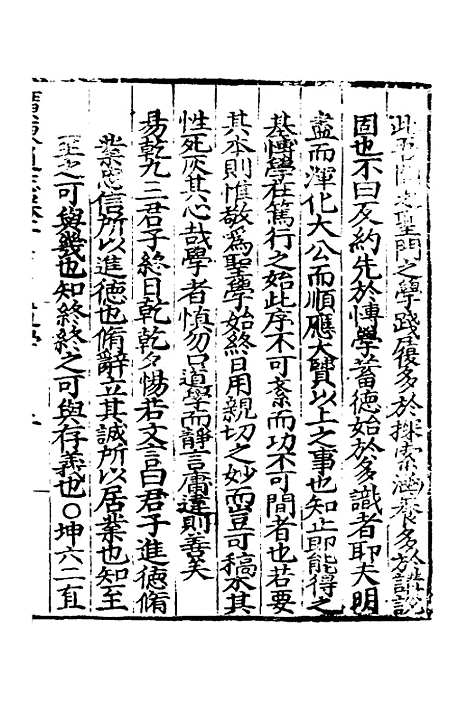 聖門之學踐履多於探索涵養多於講說
固也不曰反約先於博學蓄德始於多識者耶夫明
盡而渾化大公而順應大賢以上之事也知止即能得之
基博學在篤行之始此序不可紊而功不可間者也若要
其本則惟敬爲聖學始終日用親切之妙而豈可稿木其
性死灰其心哉學者愼勿口道學而靜言庸違則善矣
易乾九三君子終日乾乾夕惕若文言曰君子進德脩
業忠信所以進德也脩辭立其誠所以居業也知至
至之可與幾也知終終之可與存義也○坤六二直